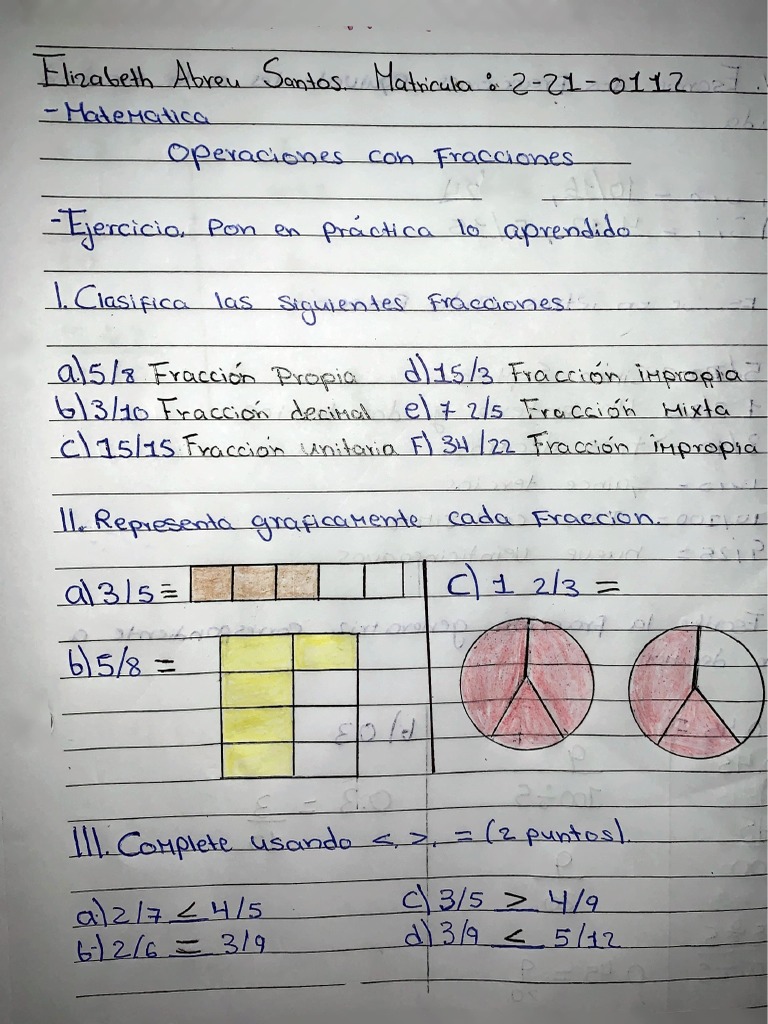 Elizabeth Abreu Santos. Matricula: 2-21-0112
-Matematica
Operaciones con Fracciones
-Ejercicio. Pon en práctica lo aprendido
I. Clasifica las siguientes Fracciones
a) 5/8 Fracción Propia d) 15/3 Fracción impropia
b) 3/10 Fracción decimal e) 7 2/5 Fracción Mixta
c) 15/15 Fracción unitaria F) 34/22 Fracción impropia
II. Representa graficamente cada Fraccion.
a) 3/5 = C) 1 2/3 =
b) 5/8 =
III. Complete usando <, >, = (2 puntos).
a) 2/7 < 4/5 c) 3/5 > 4/9
b) 2/6 = 3/9 d) 3/9 < 5/12